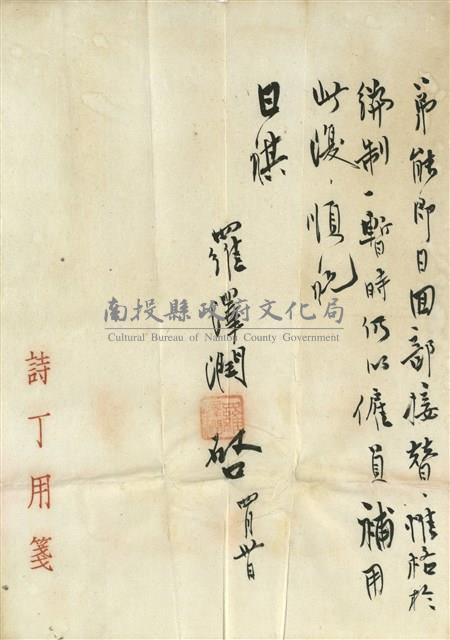 弟能即日回部接替、惟格於
編制、暫時仍以僱員補用
此復、順祝
日祺
羅澤潤 啓 四月
詩丁用箋
南投縣政府文化局
Cultural Bureau of Nantou County Government